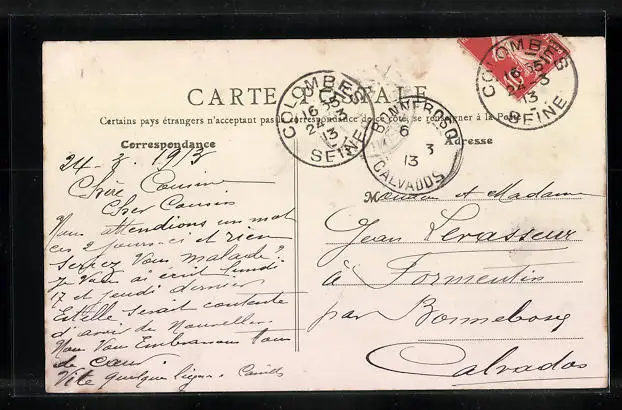 CARTE POSTALE
Certains pays étrangers n'acceptant pas la correspondance de ce côté, se renseigner à la Poste
Correspondance
Adresse
COLOMBES
16 35
24 3
13
SEINE
COLOMBES
16 35
24 3
13
SEINE
BONNEBOSQ
6
3
13
CALVADOS
24-3-1913
Chère Cousine
Cher Cousin
Nous attendions un mot
ces 2 jours-ci et rien
Seriez Vous malade?
Je Vous ai écrit Lundi
17 et jeudi dernier
Estelle serait contente
d'avoir de Nouvelles
Nous Vous Embrassons tous
de cœur.
Vite quelques lignes. Camille
Monsieur et Madame
Jean Levasseur
à Formentin
par Bonnebosq
Calvados